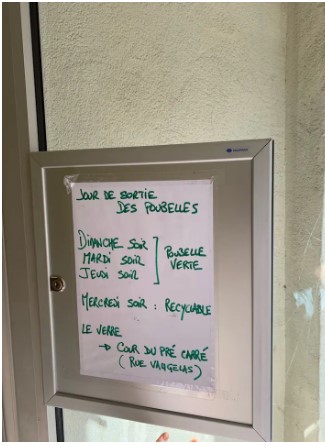 JOUR DE SORTIE
DES POUBELLES
DIMANCHE SOIR
MARDI SOIR
JEUDI SOIR
POUBELLE
VERTE
MERCREDI SOIR : RECYCLABLE
LE VERRE
→ COUR DU PRÉ CARRÉ
(RUE VAUGELAS)